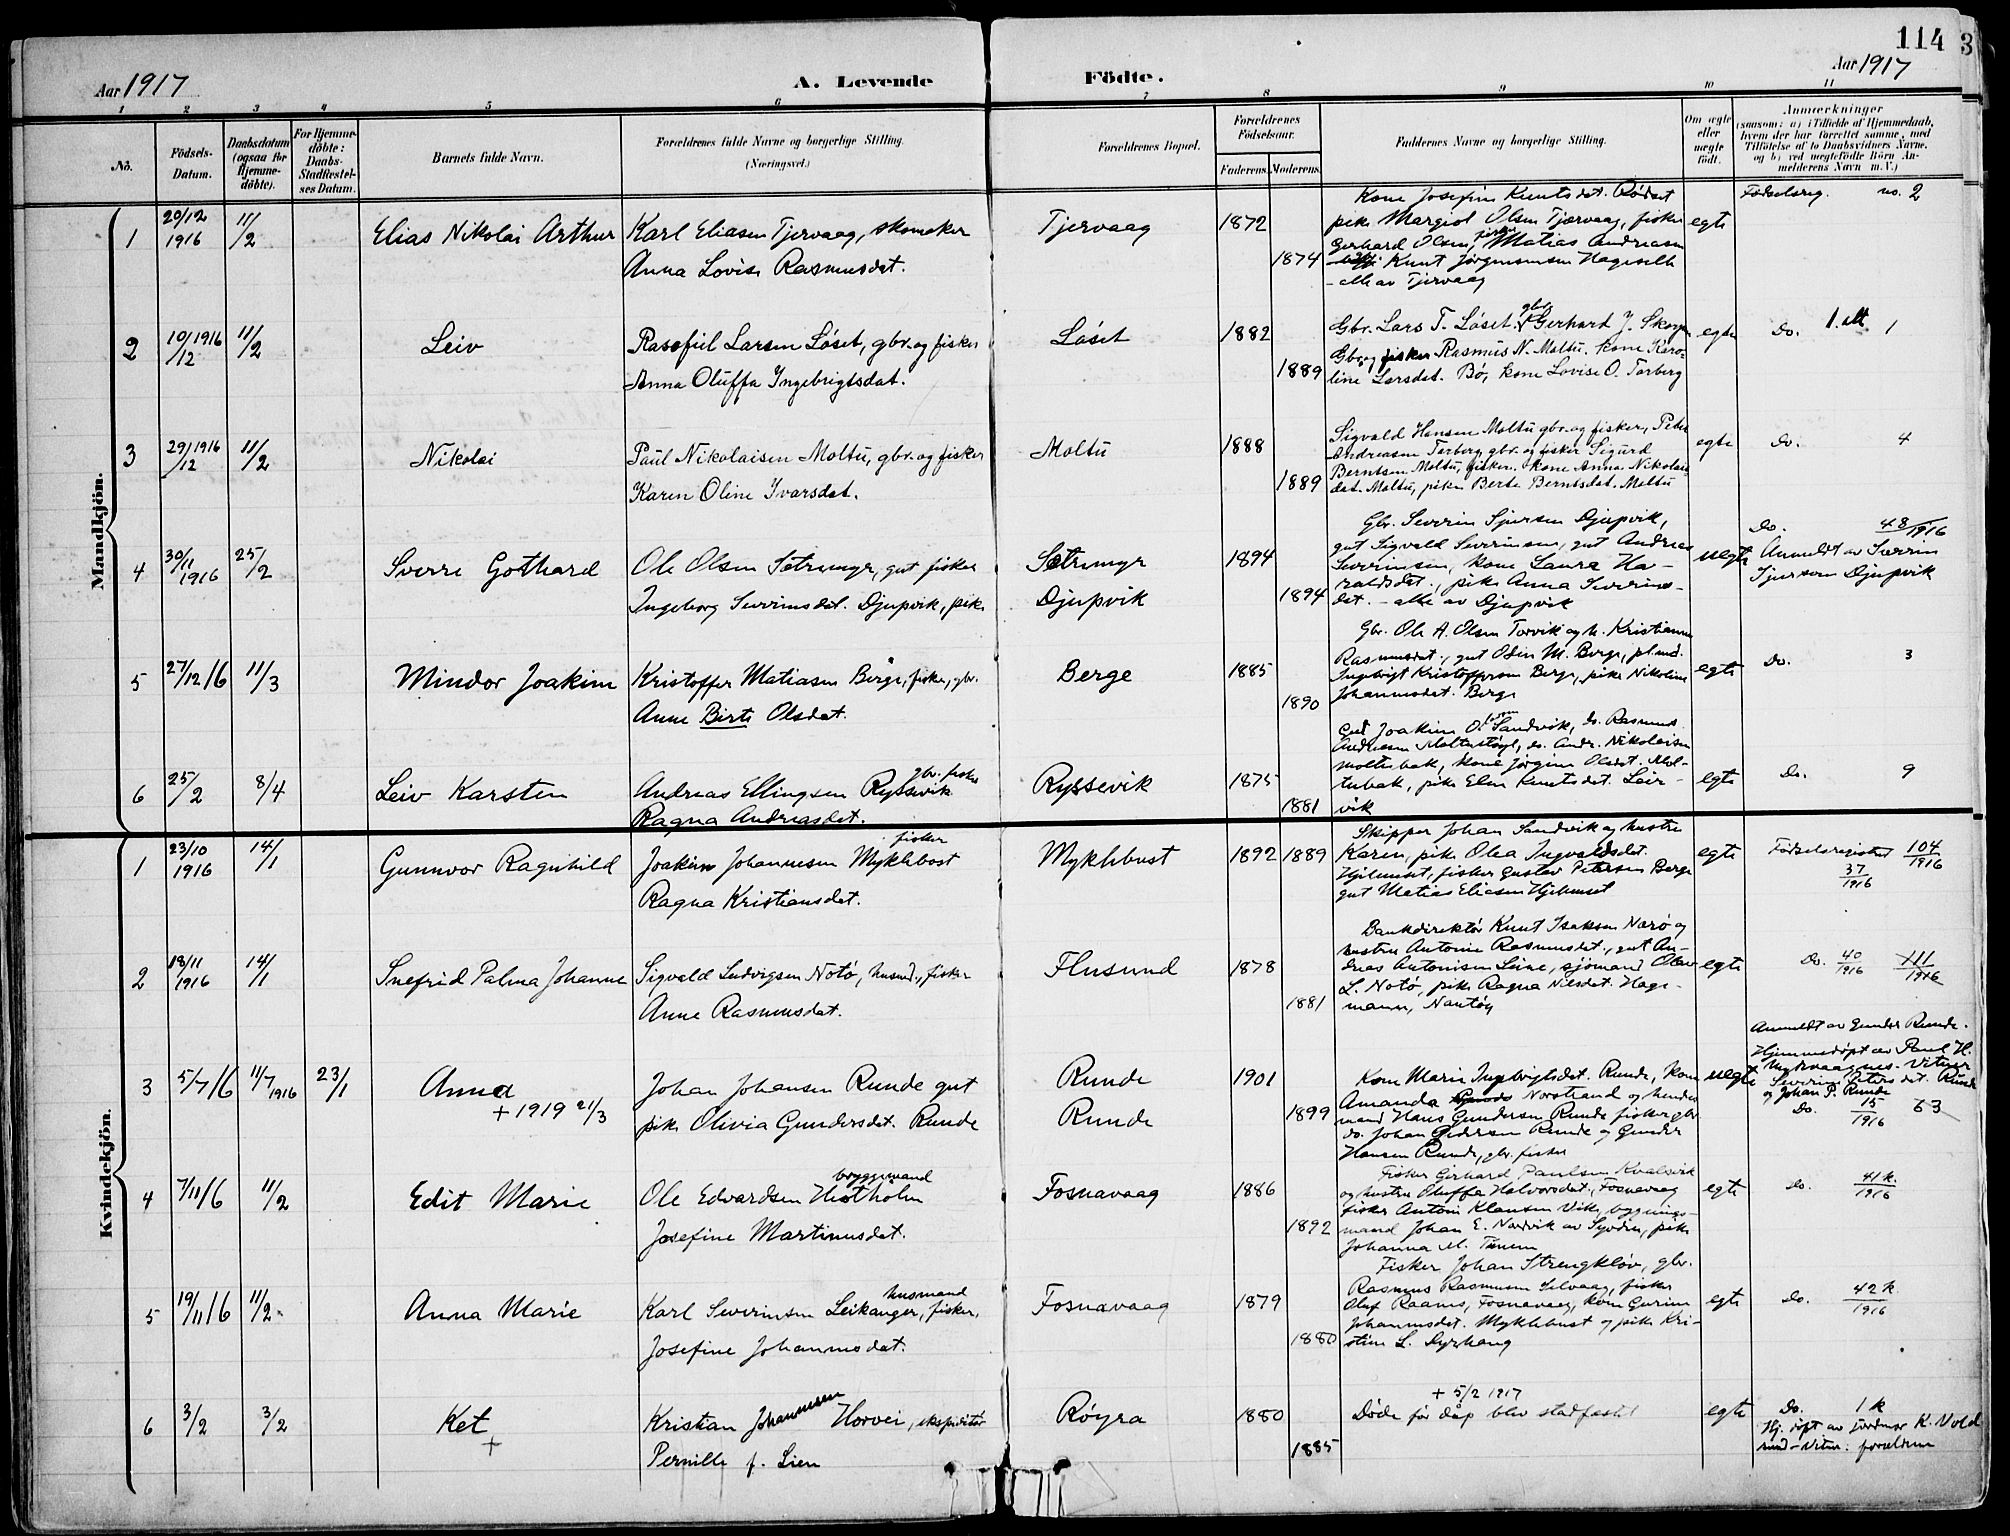 114
3
Aar 1917
A. Levende Födte.
Aar 1917
1 2 3 4 5 6 7 8 9 10 11
No.
Födsels-Datum.
Daabsdatum (ogsaa for Hjemmedöbte).
For Hjemmedöbte: Daabs-Stadfestelses Datum.
Barnets fulde Navn.
Forældrenes fulde Navne og borgerlige Stilling. (Næringsvei.)
Forældrenes Bopæl.
Forældrenes Födselsaar.
Faderens. Moderens.
Faddernes Navne og borgerlige Stilling.
Om ægte eller uægte födt.
Anmærkninger (saasom: a) i Tilfælde af Hjemmedaab, hvem der har forrettet samme, med Tilföielse af to Daabsvidners Navne, og b) ved uægtefödte Börn Anmelderens Navn m. V.)
Mandkjön.
1 20/12 1916 11/2 Elias Nikolai Arthur Karl Eliasen Tjervaag, skomaker Tjervaag 1872
Anna Lovise Rasmusdat. 1874
Kone Josefine Knutsdat. Rødset
pike Margiot Olsen Tjervaag, fisker
Gerhard Olsen, fisker Matias Andreasen
Knut Jørgensen Hageselle
- alle av Tjervaag
egte Fødselsreg. no. 2
2 10/12 1916 11/2 Leiv Rasefiel Larsen Løset, gbr. og fisker Løset 1882
Anna Oluffa Ingebrigtsdat. 1889
Gbr. Lars T. Løset. gbr Gerhard J.
Gbr. og fisker Rasmus N. Moltu. kone Karo-
line Larsdat. Bø, kone Lovise O. Torberg
egte Do. 1. att. 1
3 29/12 1916 11/2 Nikolai Paul Nikolaisen Moltu, gbr. og fisker Moltu 1888
Karen Oline Ivarsdat. 1889
Sigvald Hansen Moltu gbr. og fisker, Peder
Andreasen Torberg, gbr. og fisker Sigurd
Berntsen Moltu, fisker, kone Anna Nikolai-
dat. Moltu, pike Berte Berntsdat. Moltu
egte do. 4
4 30/11 1916 25/2 Sverre Gothard Ole Olsen Sætremyr, gut fisker Sætremyr 1894
Ingeborg Severinsdat. Djupvik, pike Djupvik 1894
Gbr. Severin Sjursen Djupvik,
gut Sigvald Severinsen, gut Andreas
Severinsen, kone Laura Ha-
raldsdat., pike Anna Severins-
dat. - alle av Djupvik
uegte do. 48/1916
Anmeldt av Severin
Sjursen Djupvik
5 27/12 16 11/3 Mindor Joakim Kristoffer Matiasen Berge, fisker, gbr. Berge 1885
Anne Birte Olsdat. 1890
Gbr. Ole A. Olsen Torvik og h. Kristianne
Rasmusdat., gut Odin M. Berge,
Ingebrigt Kristoffersen Berge, pike Nikoline
Johannesdat. Berge
egte Do. 3
6 25/2 8/4 Leiv Karsten Andreas Ellingsen Ryssevik gbr. fisker Ryssevik 1875
Ragna Andreasdat. 1881
Gut Joakim O. Sandvik, do. Rasmus
Andreasen Moltustøyl, do. Andr. Nikolaisen
Moltubak, kone Jørgine Olsdat. Mol-
tubak, pike Elen Knutsdat. Leir-
vik
egte Do. 9
Kvindekjön.
1 23/10 1916 14/1 Gunnvor Ragnhild Joakim Johannesen Myklebost fisker Myklebust 1892 1889
Ragna Kristiansdat.
Skipper Johan Sandvik og hustru
Karen, pike Olea Ingvaldsdat.
Hjelmeset, fisker Gustav Petersen Berge
gut Matias Eliasen Hjelmeset
egte Fødselsregistret 104/1916
37/1916
2 18/11 1916 14/1 Snefrid Palma Johanne Sigvald Ludvigsen Notø, husmd., fisker Flusund 1878
Anne Rasmusdat. 1881
Bankdirektør Knut Isaksen Nærø og
hustru Antonie Rasmusdat., gut An-
dreas Antonisen Leine, sjømand Olav
L. Notø, pike Ragna Nilsdat. Hage-
mann, Nautøy
egte Do. 40/1916 111/1916
3 5/7 16 11/7 1916 23/1 Anna Johan Johansen Runde gut Runde 1901
+ 1919 21/3 pike Olivia Gundersdat. Runde Runde 1899
Kone Marie Ingebrigtsdat. Runde, kone
Amanda Norstrand og hendes
mand Hans Gundersen Runde fisker gbr.
do. Johan Pedersen Runde og Gunder
Hansen Runde, gbr. fisker
uegte Anmeldt av Gunder Runde.
Hjemmedøpt av Paul H.
Myrvaagnes. Vitner
Severine Petersdat. Runde
og Johan P. Runde
Do. 15/1916 63
4 7/11 16 11/2 Edit Marie Ole Edvardsen Hestholm bryggemand Fosnavaag 1886
Josefine Martinusdat. 1892
Fisker Gerhard Paulsen Kvalsvik
og hustru Oluffa Halvorsdat., Fosnavaag
fisker Anton Klausen Vik, bygnings-
mand Johan E. Nordvik av Syvden, pike
Johanna M.
egte do. 41 k./1916
5 19/11 16 11/2 Anna Marie Karl Severinsen Leikanger, husmand fisker, Fosnavaag 1879
Josefine Johannesdat. 1880
Fisker Johan Strengkløv, gbr.
Rasmus Rasmussen Selvaag, fisker
Oluf Raanes, Fosnavaag, kone Gurine
Johannesdat. Myklebust og pike Kri-
stine L. Dyrhaug
egte do. 42 k/1916
6 3/2 3/2 Ket + Kristian Johannesen Horvei, ekspeditør Røyra 1880
Pernille f. Lien 1885
+ 5/2 1917
Døde før dåp blev stadfestet
egte Do. 1 k
Hj. døpt av jordmor K. Vold
sund - vitner: forældrene